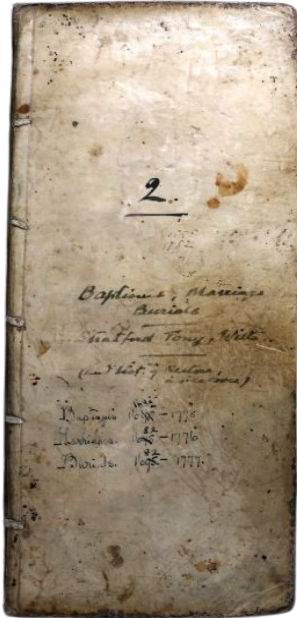 2.
Baptisms, Marriages
Burials
Stratford Tony, Wilts.
(and list of Rectors,
Baptisms - 1775
Marriages - 1776
Burials - 1777.